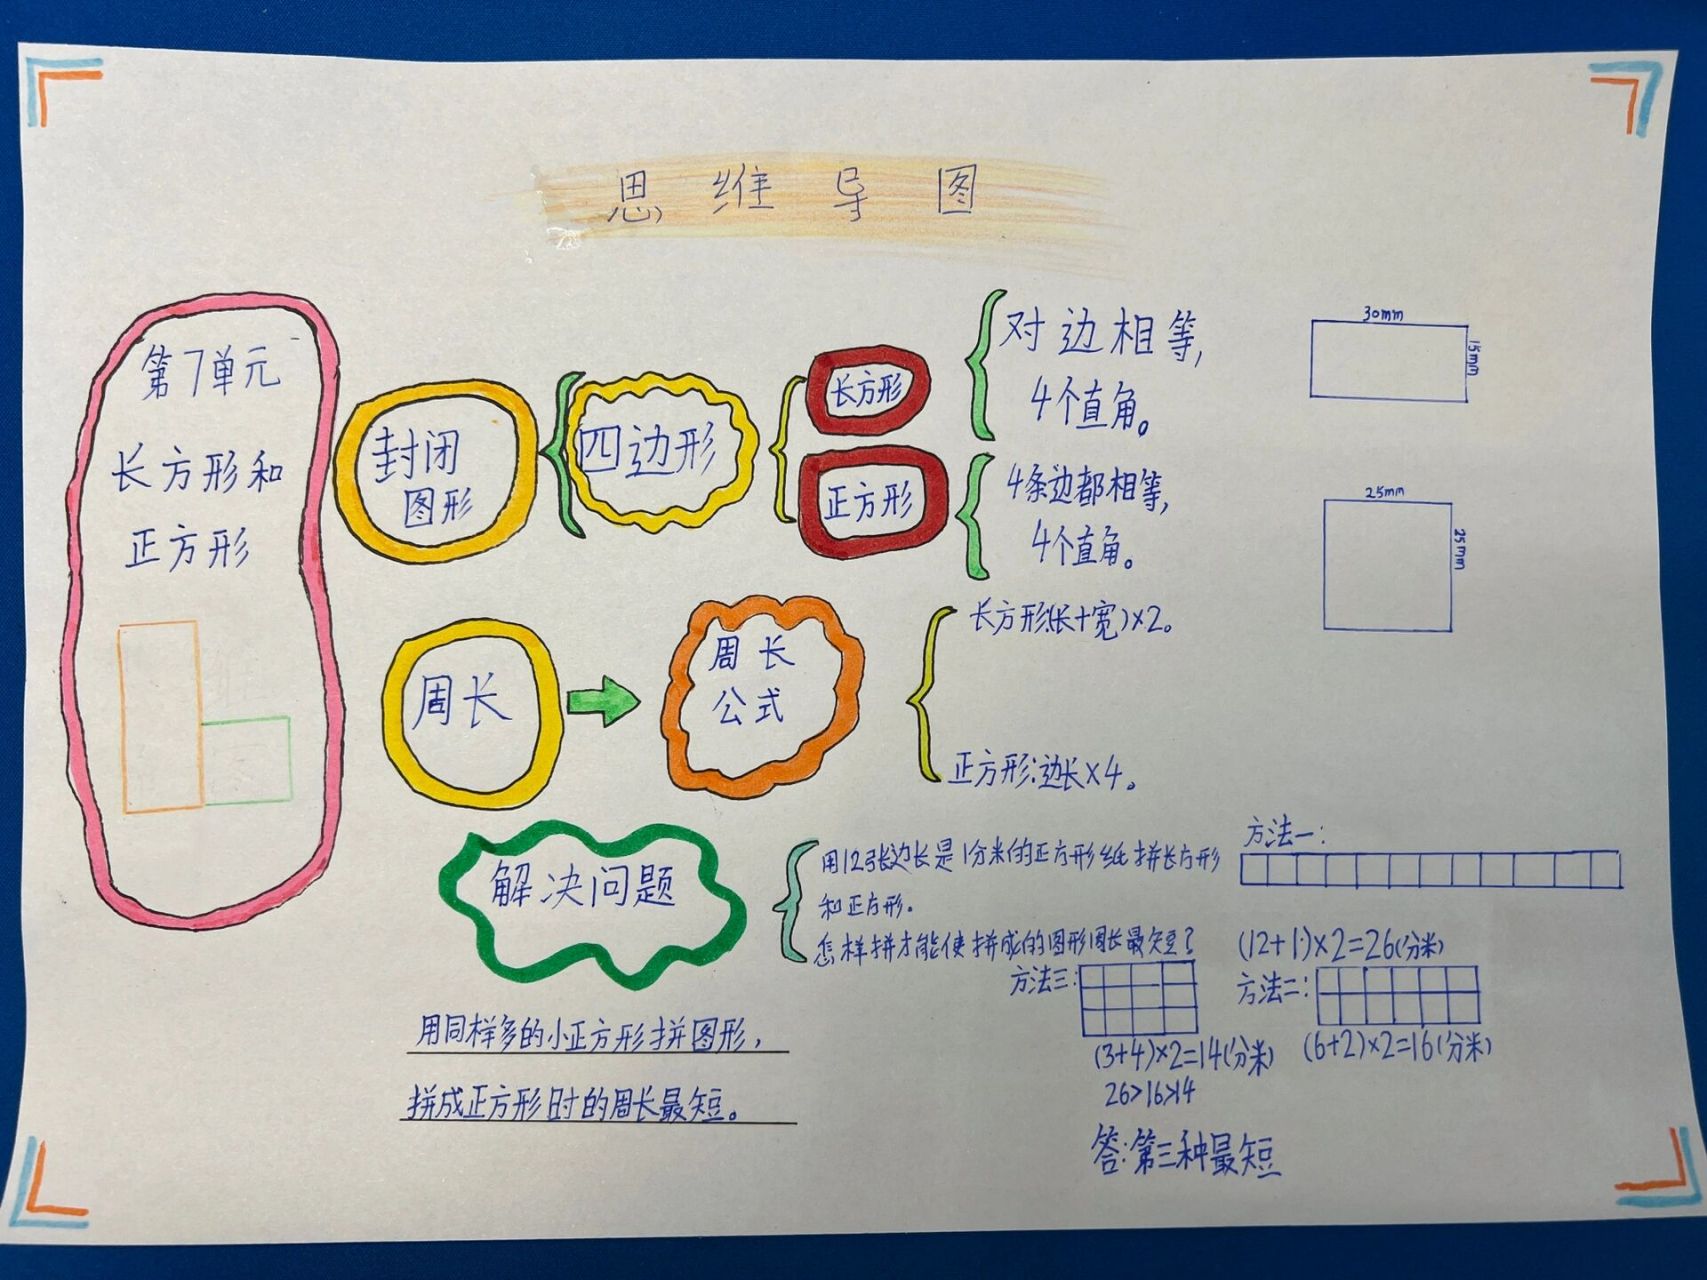 思维导图
第7单元
长方形和
正方形
封闭
图形
四边形
长方形
对边相等,
4个直角。
30mm
15mm
正方形
4条边都相等,
4个直角。
25mm
25mm
周长
周长
公式
长方形:(长+宽)×2。
正方形:边长×4。
解决问题
用12张边长是1分米的正方形纸拼长方形
和正方形.
怎样拼才能使拼成的图形周长最短?
方法一:
(12+1)×2=26(分米)
方法二:
(6+2)×2=16(分米)
方法三:
(3+4)×2=14(分米)
26>16>14
答:第三种最短
用同样多的小正方形拼图形,
拼成正方形时的周长最短。